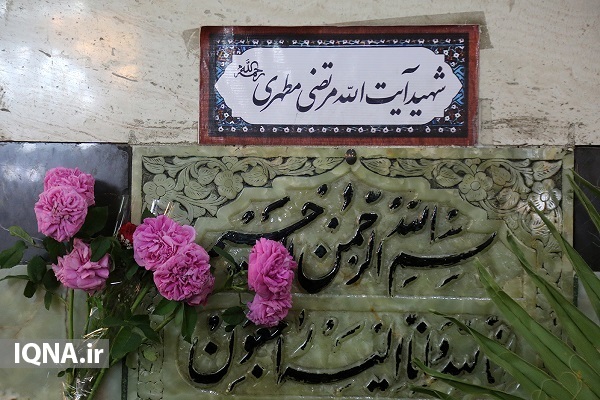 شهید آیت الله مرتضی مطهری رحمه‌الله
بسم الله الرحمن الرحیم
انا لله و انا الیه راجعون
IQNA.ir